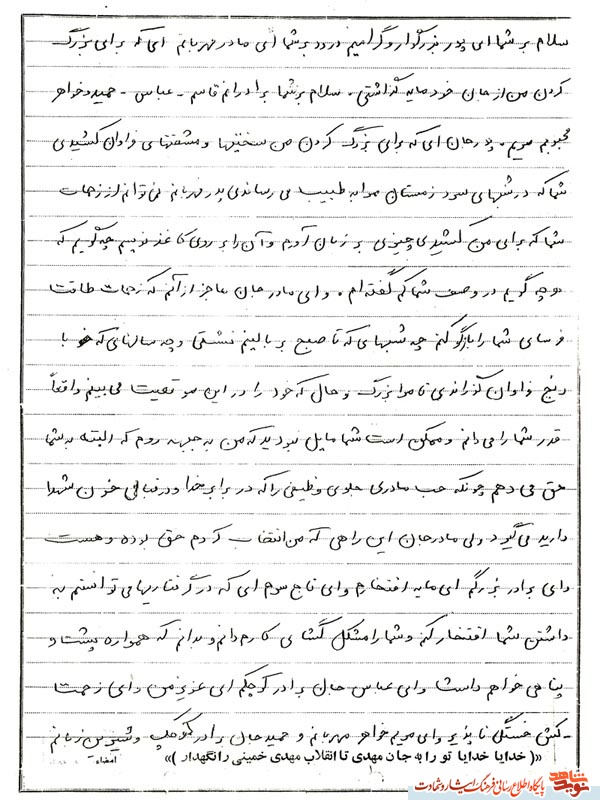 سلام بر شما ای پدر بزرگوار و گرامیم درود بر شما ای مادر مهربانم ای که برای بزرگ
کردن من از جان خود مایه گذاشتی. سلام بر شما برادرانم قاسم - عباس - حمید و خواهر
محبوبم مریم. پدر جان ای که برای بزرگ کردن من سختیها و مشقتهای فراوان کشیدی
شما که در شبهای سرد زمستان مرا به طبیب می رساندی پدر مهربانم نمی توانم از زحمات
شما که برای من کشیدی چیزی بر زبان آورم و آن را بر روی کاغذ نویسم چه گویم که
هر چه گویم در وصف شما کم گفته ام. و ای مادر جان عاجز از آنم که زحمات طاقت
فرسای شما را بازگو کنم چه شبهای که تا صبح بر بالینم نشستی و چه سالهای که با
رنج فراوان گذراندی تا مرا بزرگ و حال که خود را در این موقعیت می بینم واقعاً
قدر شما را می دانم و ممکن است شما مایل نبودید که من به جبهه روم که البته به شما
حق می دهم چونکه حب مادری جلوی وظیفی را که در برابر خدا و در قبال خون شهدا
دارید می گیرد ولی مادر جان این راهی که من انتخاب کردم حق بوده و هست
و ای برادر بزرگم ای مایه افتخارم و ای تاج سرم ای که در گرفتاریها می توانستم به
داشتن شما افتخار کنم و شما را مشکل گشای کارم دانم و بدانم که همواره پشت و
پناهی خواهم داشت و ای عباس جان برادر کوچکم ای عزیز من و ای زحمت
-کش خستگی ناپذیر و ای مریم خواهر مهربانم و حمید جان برادر کوچک و شیرین زبانم
«( خدایا خدایا تو را به جان مهدی تا انقلاب مهدی خمینی را نگهدار )»
امضاء
نوید شاهد
پایگاه اطلاع رسانی فرهنگ ایثار و شهادت